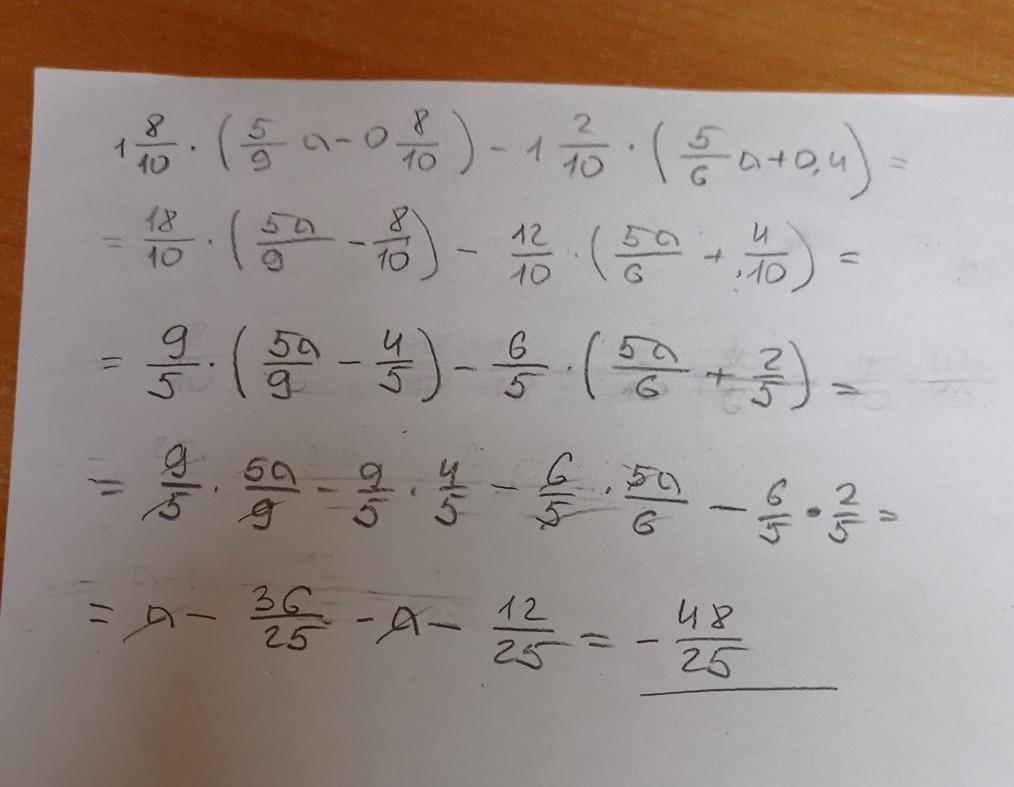 1 8/10 · (5/9 a - 0 8/10) - 1 2/10 · (5/6 a + 0,4) =
= 18/10 · (5a/9 - 8/10) - 12/10 · (5a/6 + 4/10) =
= 9/5 · (5a/9 - 4/5) - 6/5 · (5a/6 + 2/5) =
= 9/5 · 5a/9 - 9/5 · 4/5 - 6/5 · 5a/6 - 6/5 · 2/5 =
= a - 36/25 - a - 12/25 = - 48/25